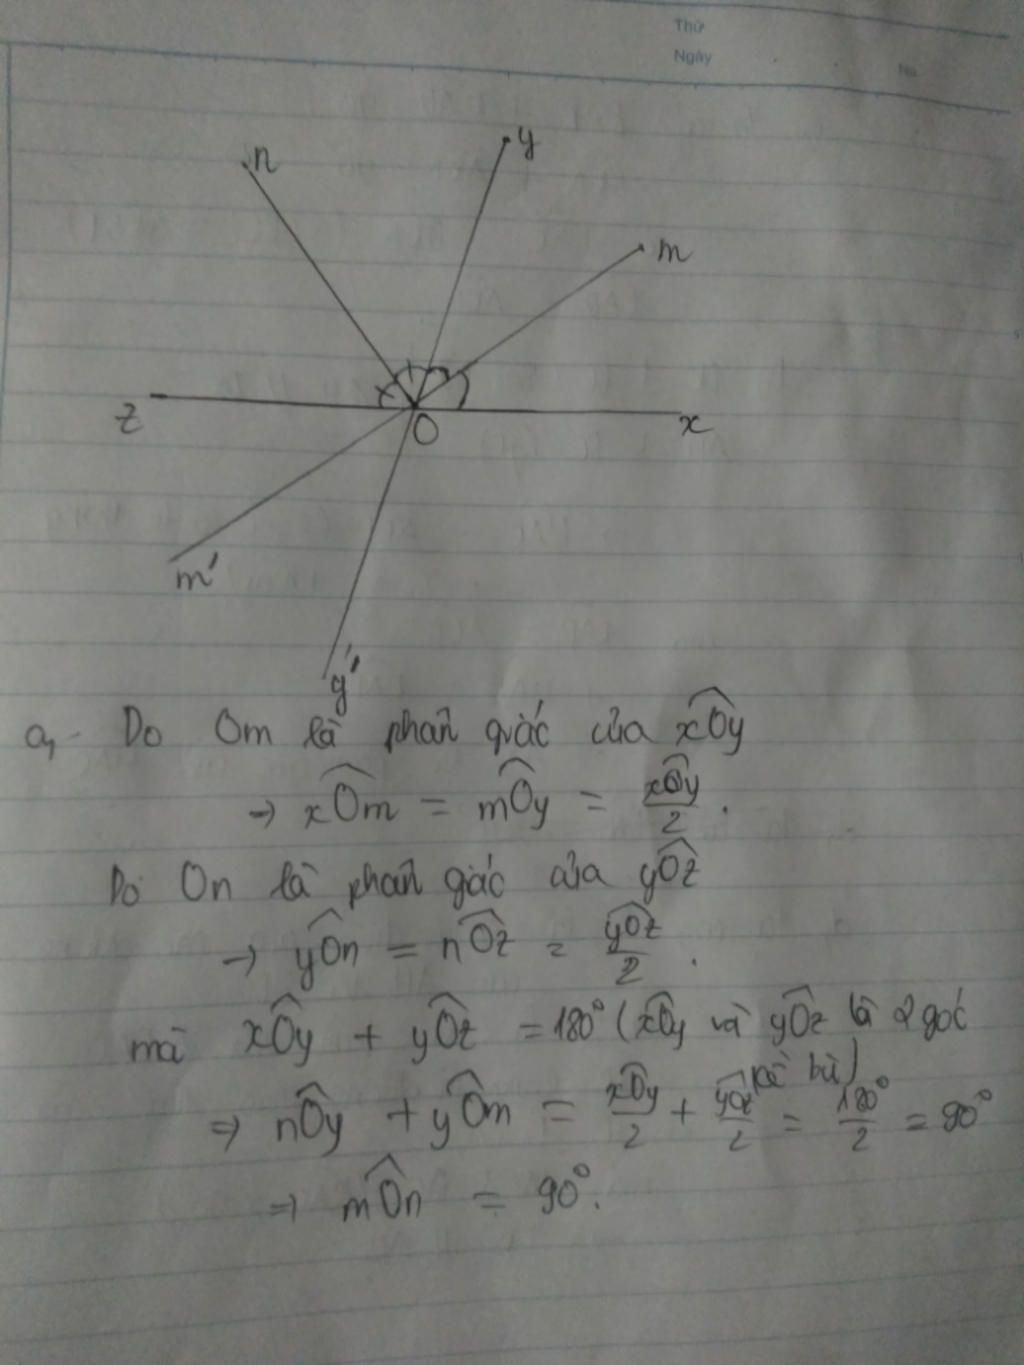 Thứ
Ngày
No.
n
y
m
z
O
x
m'
y'
a, Do Om là phân giác của xÔy
→ xÔm = mÔy = xÔy/2 .
Do On là phân giác của yÔz
→ yÔn = nÔz = yÔz/2 .
mà xÔy + yÔz = 180° (xÔy và yÔz là 2 góc
kề bù)
⇒ nÔy + yÔm = xÔy/2 + yÔz/2 = 180°/2 = 90°
⇒ mÔn = 90°.